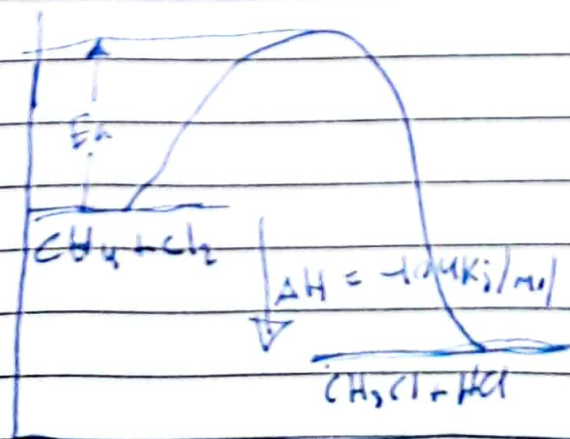 Ea
CH4 + Cl2
ΔH = -104 Kj/mol
CH3Cl + HCl